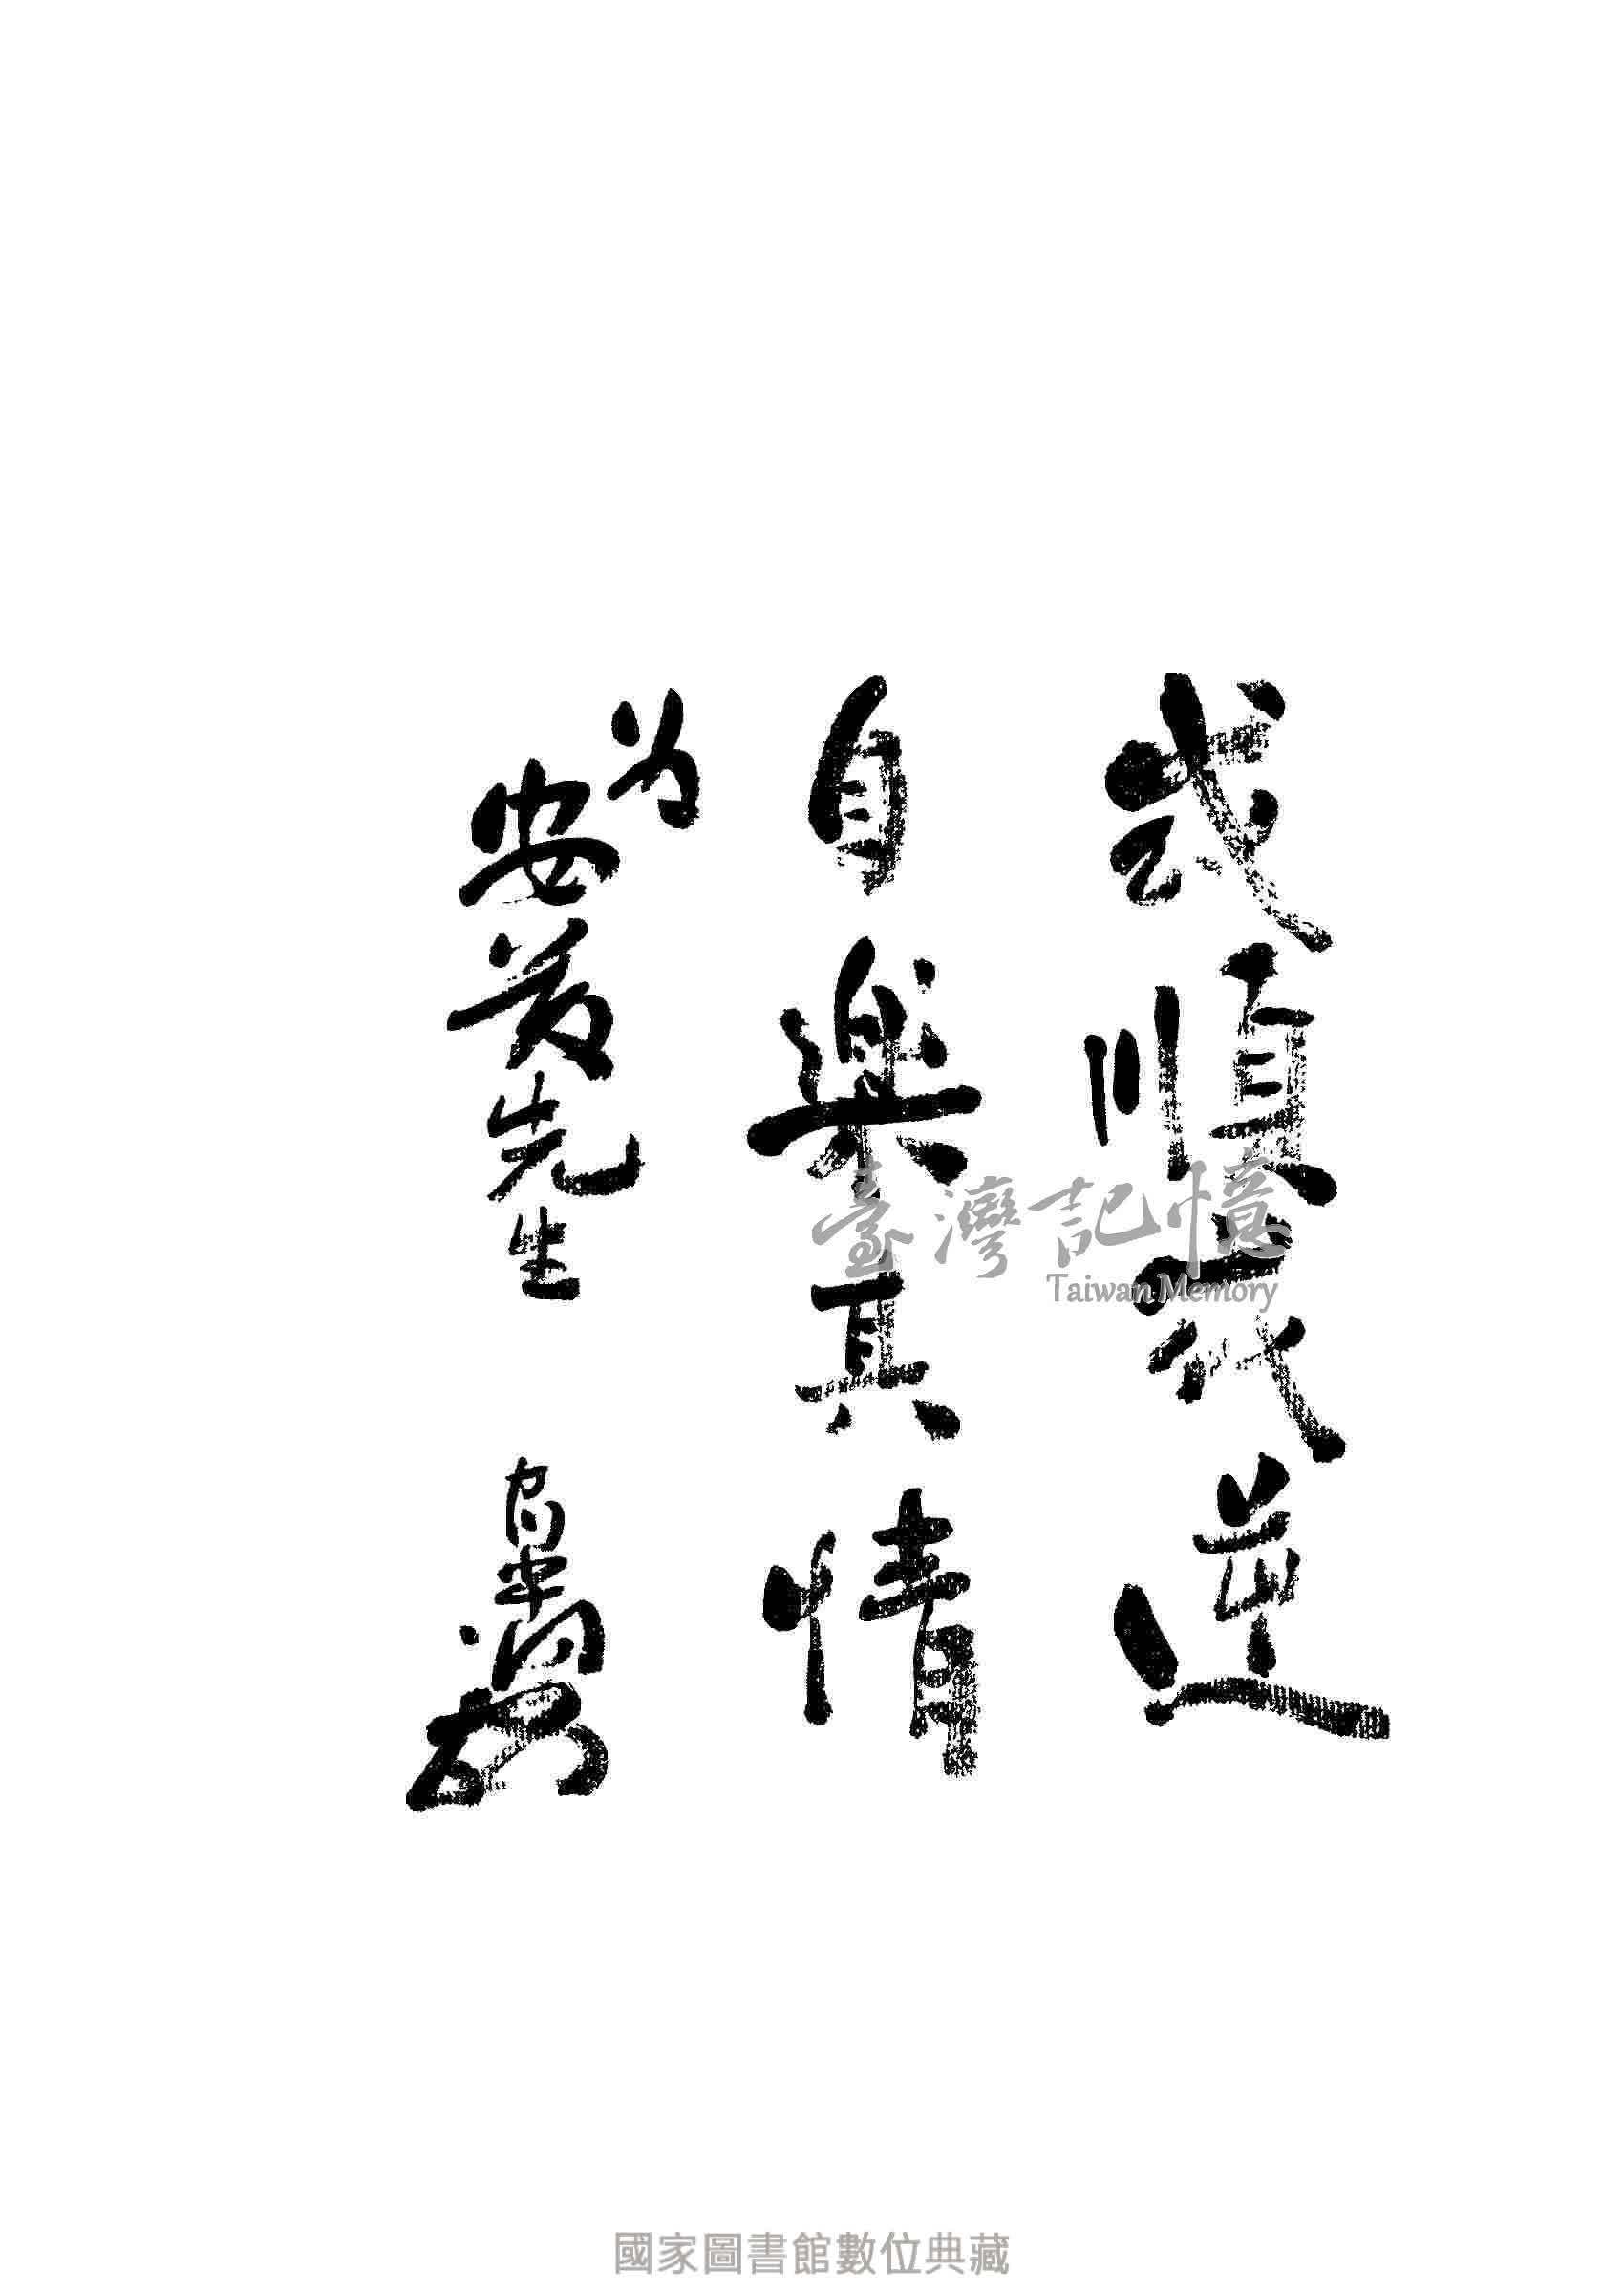 或順或逆
自樂真情
為
安義先生
臺灣記憶
Taiwan Memory
國家圖書館數位典藏